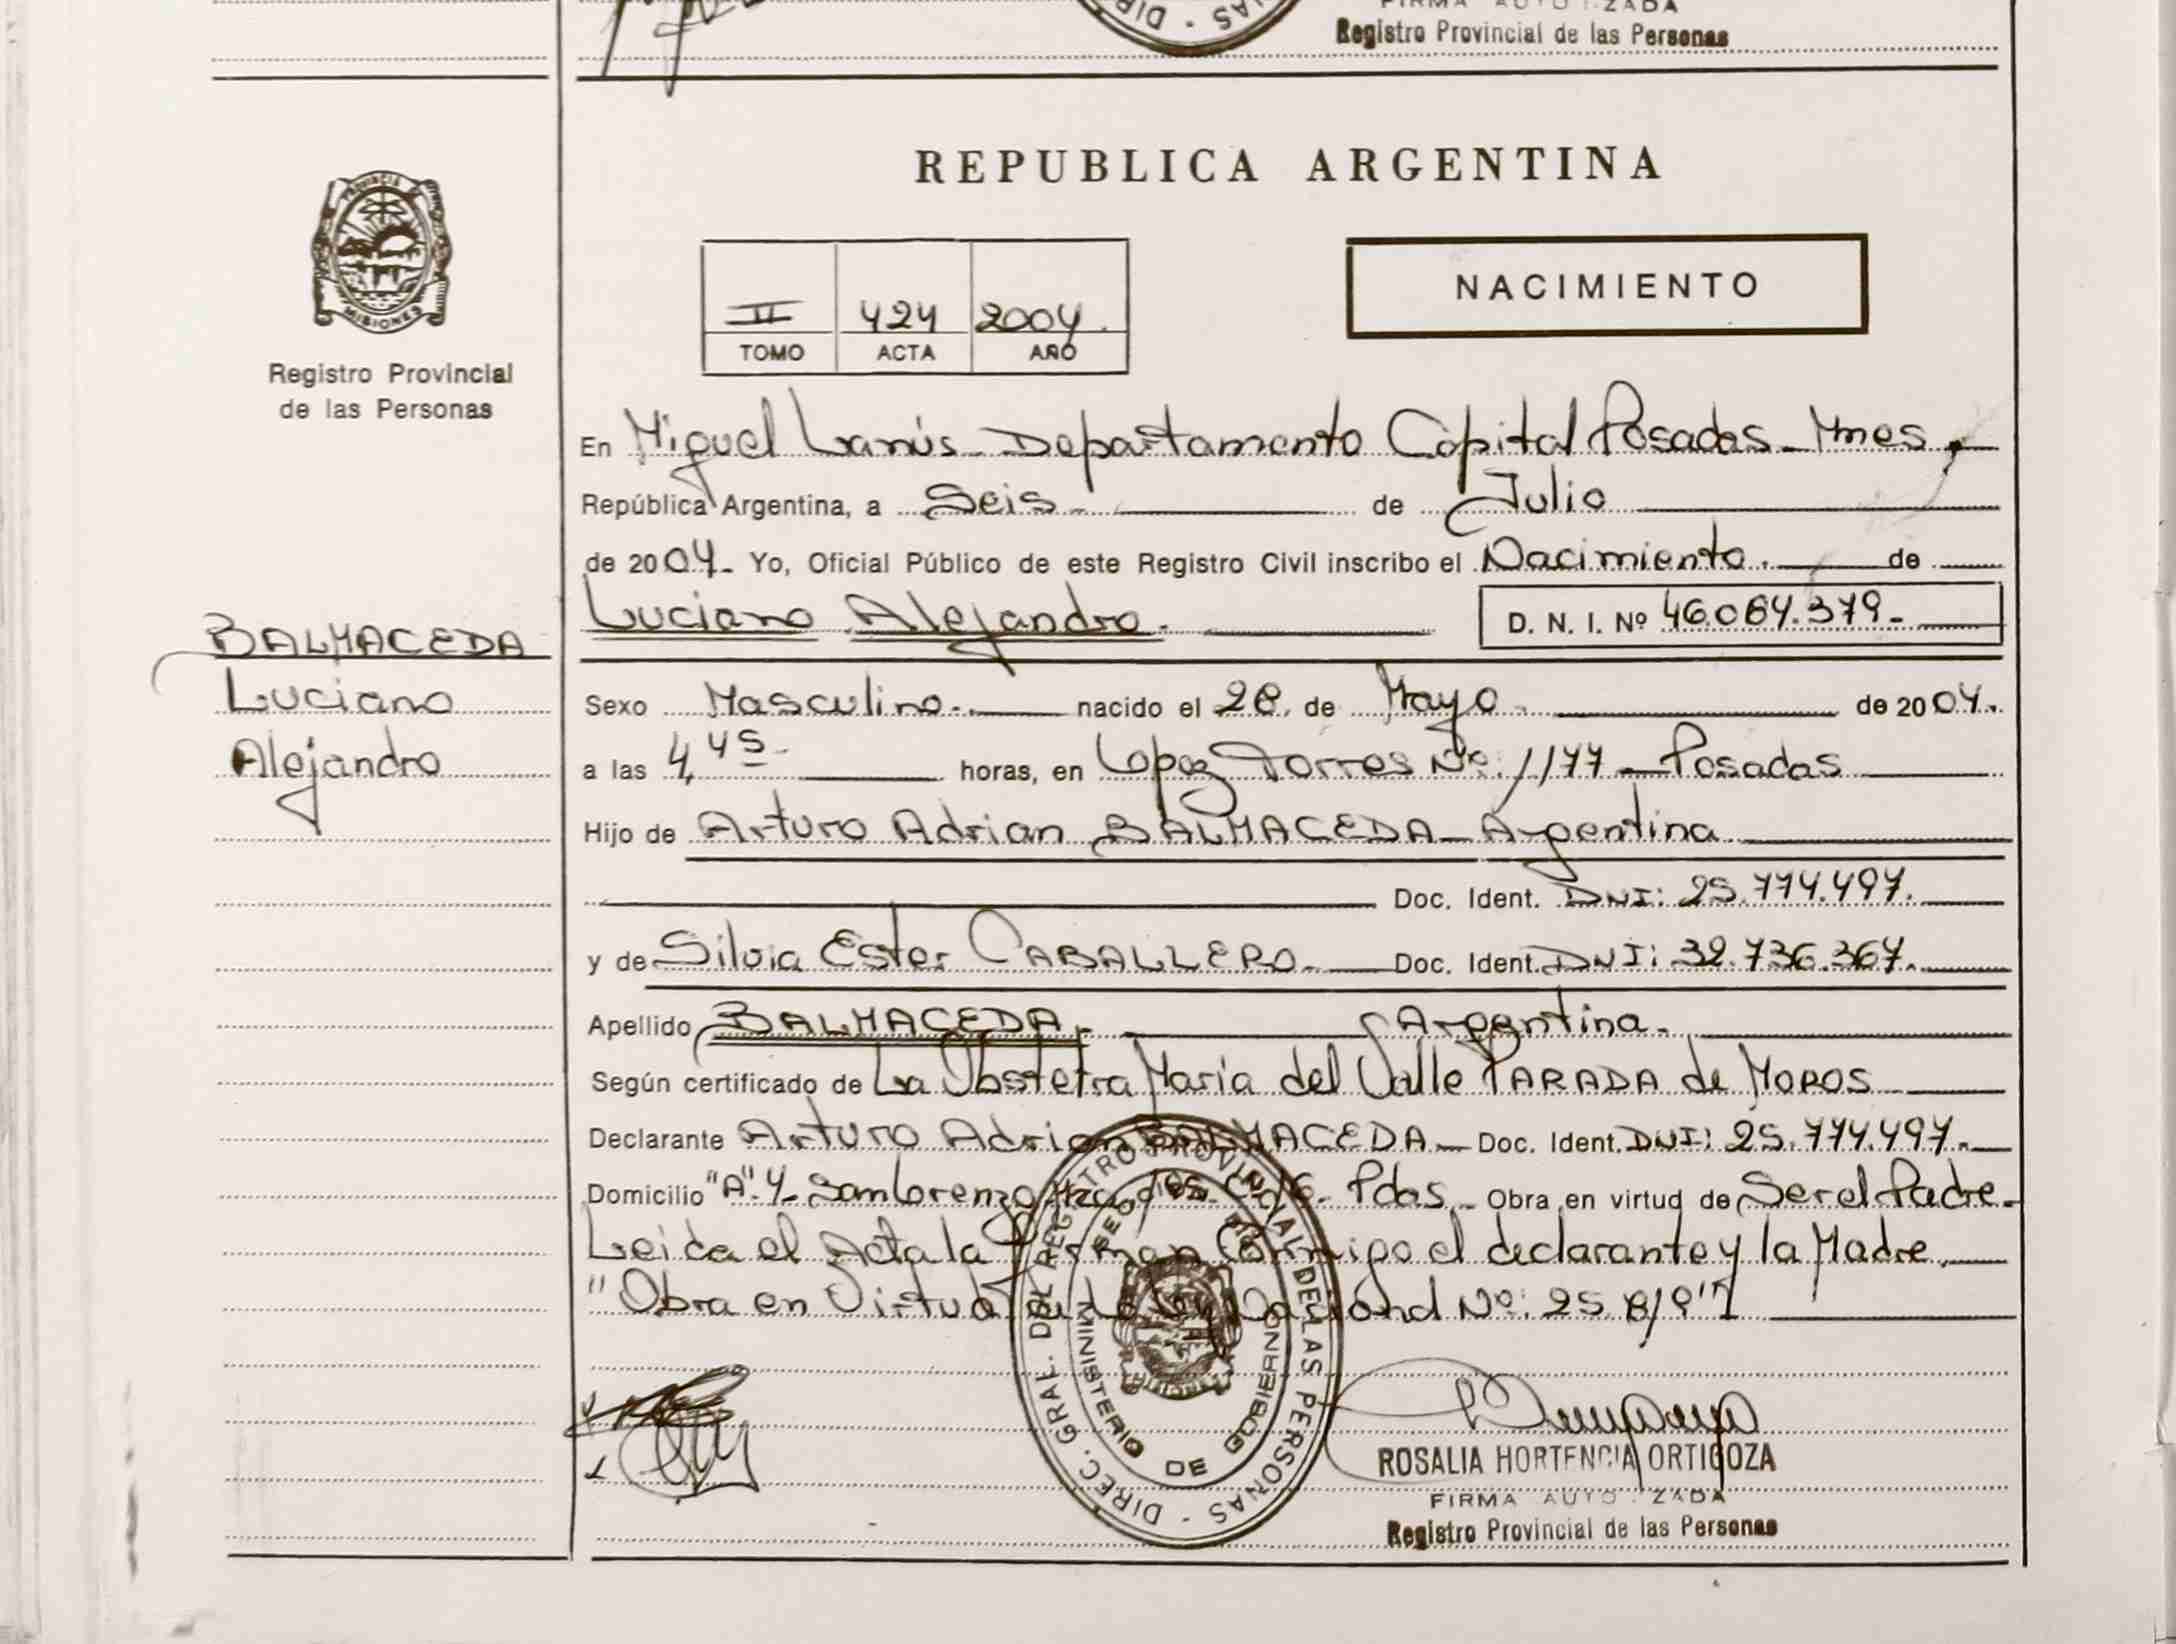 FIRMA AUTO ZADA
Registro Provincial de las Personas
REPUBLICA ARGENTINA
PROVINCIA
MISIONES
Registro Provincial
de las Personas
II 424 2004.
TOMO ACTA AÑO
NACIMIENTO
En Miguel Lanús - Departamento Capital Posadas - Mnes.
República Argentina, a Seis - de Julio
de 2004 - Yo, Oficial Público de este Registro Civil inscribo el Nacimiento. de
Luciano Alejandro. D. N. I. Nº 46.064.379.-
BALMACEDA
Luciano
Alejandro
Sexo Masculino.- nacido el 28. de Mayo. de 2004.
a las 4,45- horas, en Lopez Torres Nº: 1177 - Posadas
Hijo de Arturo Adrian BALMACEDA - Argentina
Doc. Ident. DNI: 25.774.497.
y de Silvia Ester CABALLERO. - Doc. Ident. DNI: 32.736.367.
Apellido BALMACEDA. Argentina.
Según certificado de La Obstetra María del Valle PARADA de MOROS
Declarante Arturo Adrian BALMACEDA - Doc. Ident. DNI: 25.774.497.-
Domicilio "A" 4 - San Lorenzo Pdas - Obra en virtud de Ser el Padre.
Leida el Acta la Firman Conmigo el declarante y la Madre.
"Obra en Virtud a la Ley Nacional Nº: 25.819"
DIREC. GRAL. DEL REGISTRO PROVINCIAL DE LAS PERSONAS -
MINISTERIO DE GOBIERNO
ROSALIA HORTENCIA ORTIGOZA
FIRMA AUTO ZADA
Registro Provincial de las Personas